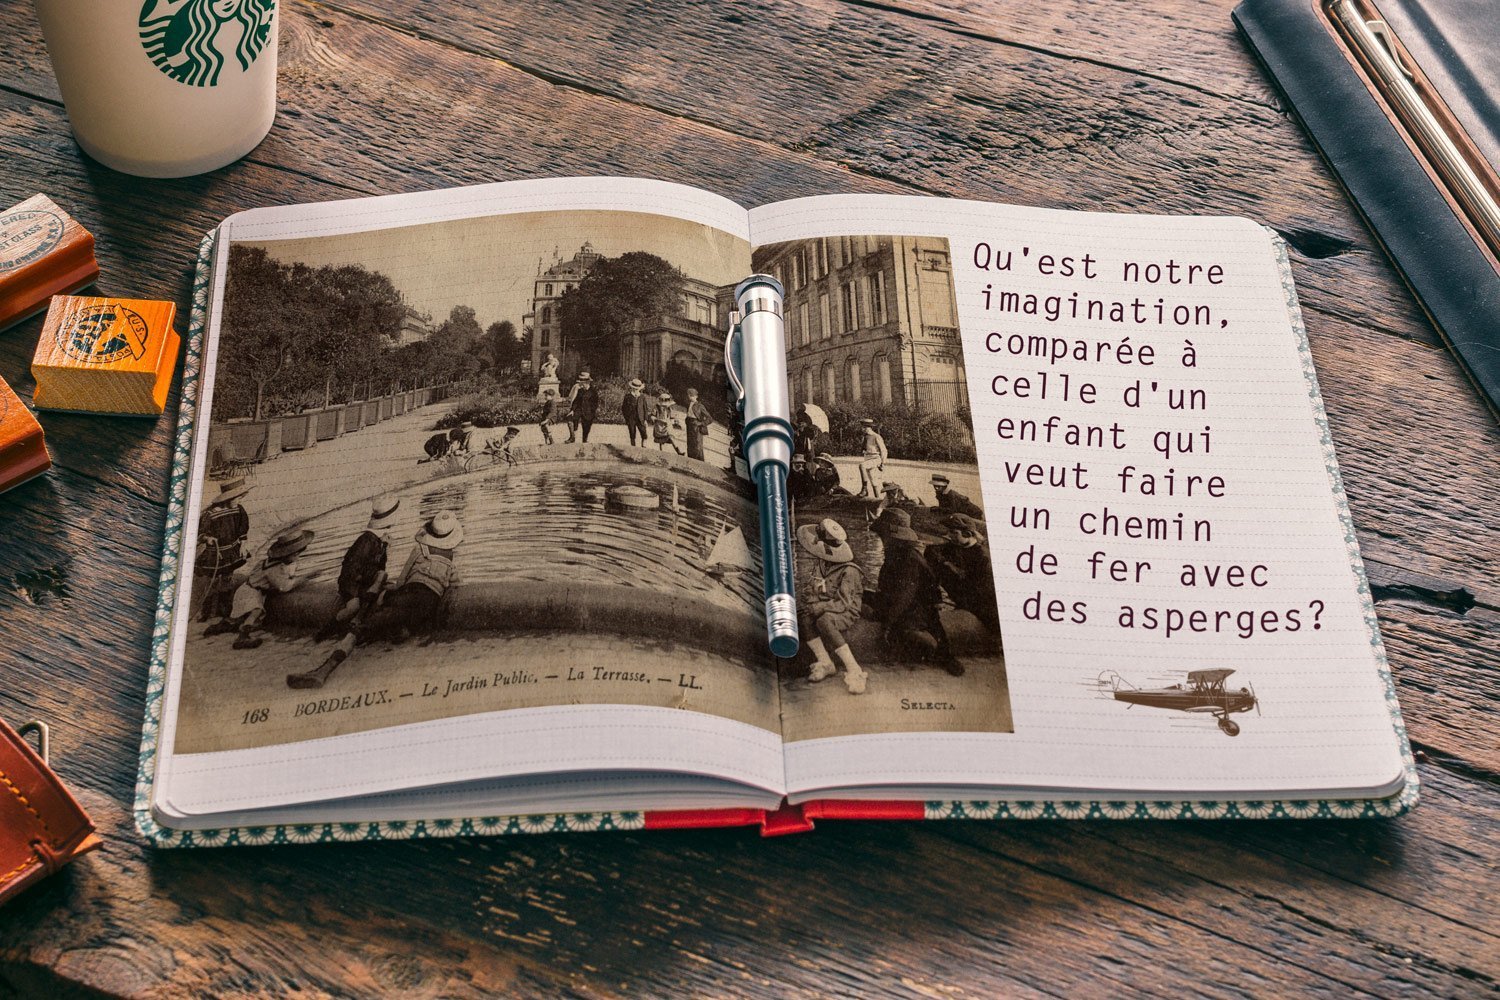 168 BORDEAUX. — Le Jardin Public. — La Terrasse. — LL.
SELECTA
Qu'est notre
imagination,
comparée à
celle d'un
enfant qui
veut faire
un chemin
de fer avec
des asperges?